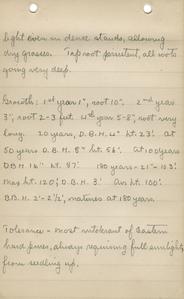 light even in dense stands, allowing
dry grasses. Tap root persistent, all roots
going very deep.
Growth: 1st year 1", root 10". 2nd year
3", root 2-3 feet. 4th year 5-8", root very
long. 20 years, D.B.H. 4" ht. 23'. At
50 years D.B.H. 8" ht. 56'. At 100 years
D.B.H. 16" ht. 87'. 180 years - 21" - 103'.
Max. ht. 120', D.B.H. 3'. Av. ht. 100'.
D.B.H. 2'-2½', matures at 180 years.
Tolerance - most intolerant of Eastern
hard pines, always requiring full sunlight
from seedling up.